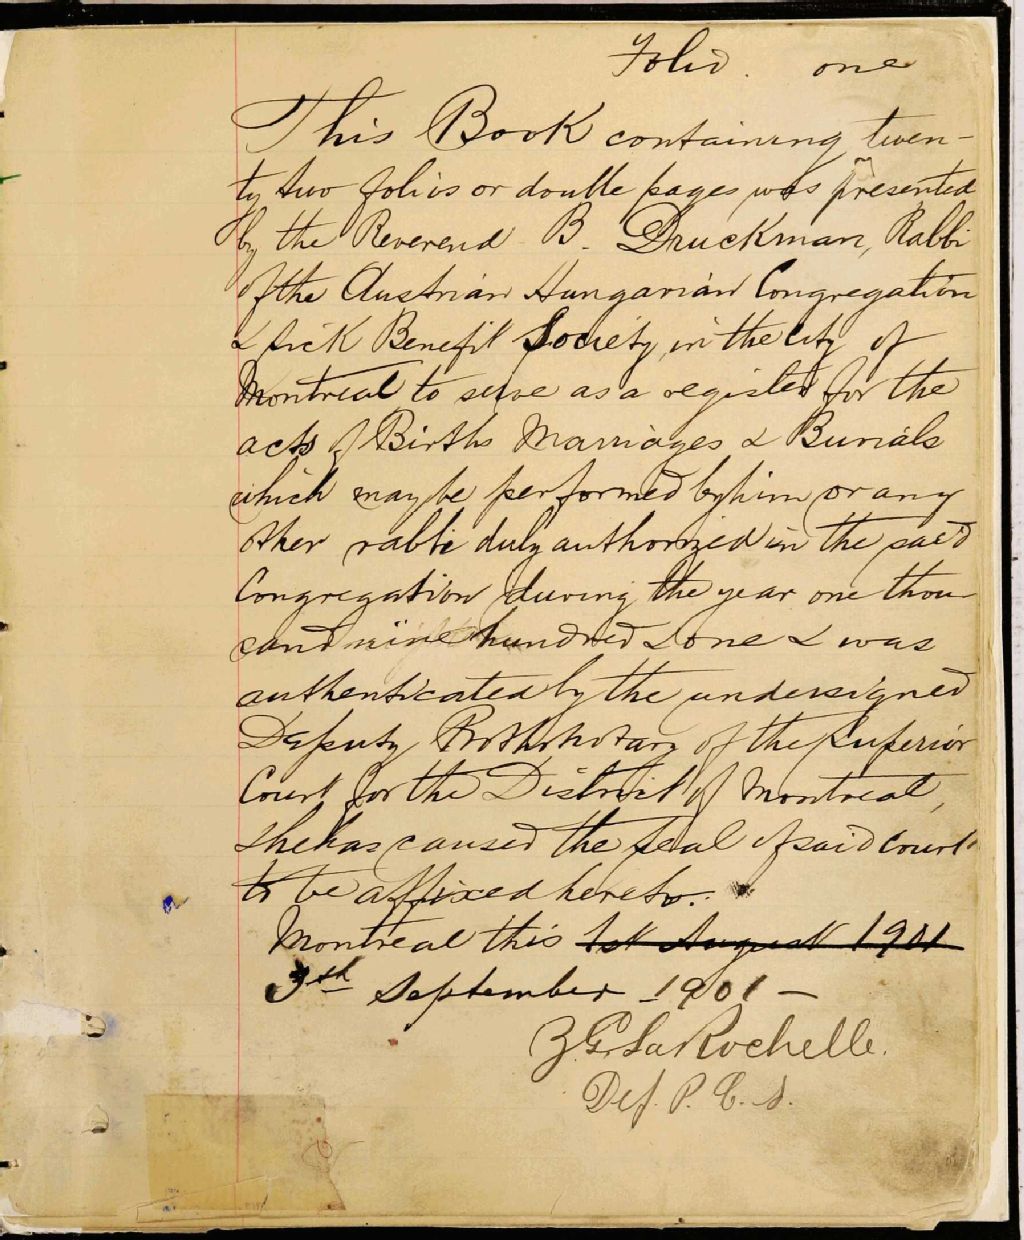 Folio. one
This Book containing twen-
ty two folios or double pages was presented
by the Reverend B. Druckman, Rabbi
of the Austrian Hungarian Congregation
& sick Benefit Society, in the city of
Montreal to serve as a register for the
acts of Births Marriages & Burials
which may be performed by him or any
other rabbi duly authorized in the said
Congregation during the year one thou-
sand nine hundred & one & was
authenticated by the undersigned
Deputy Prothonotary of the Superior
Court for the District of Montreal,
she has caused the seal of said court
to be affixed hereto.
Montreal this 1st August 1901
3th September 1901 —
Z. G. LaRochelle.
Dep. P. C. S.